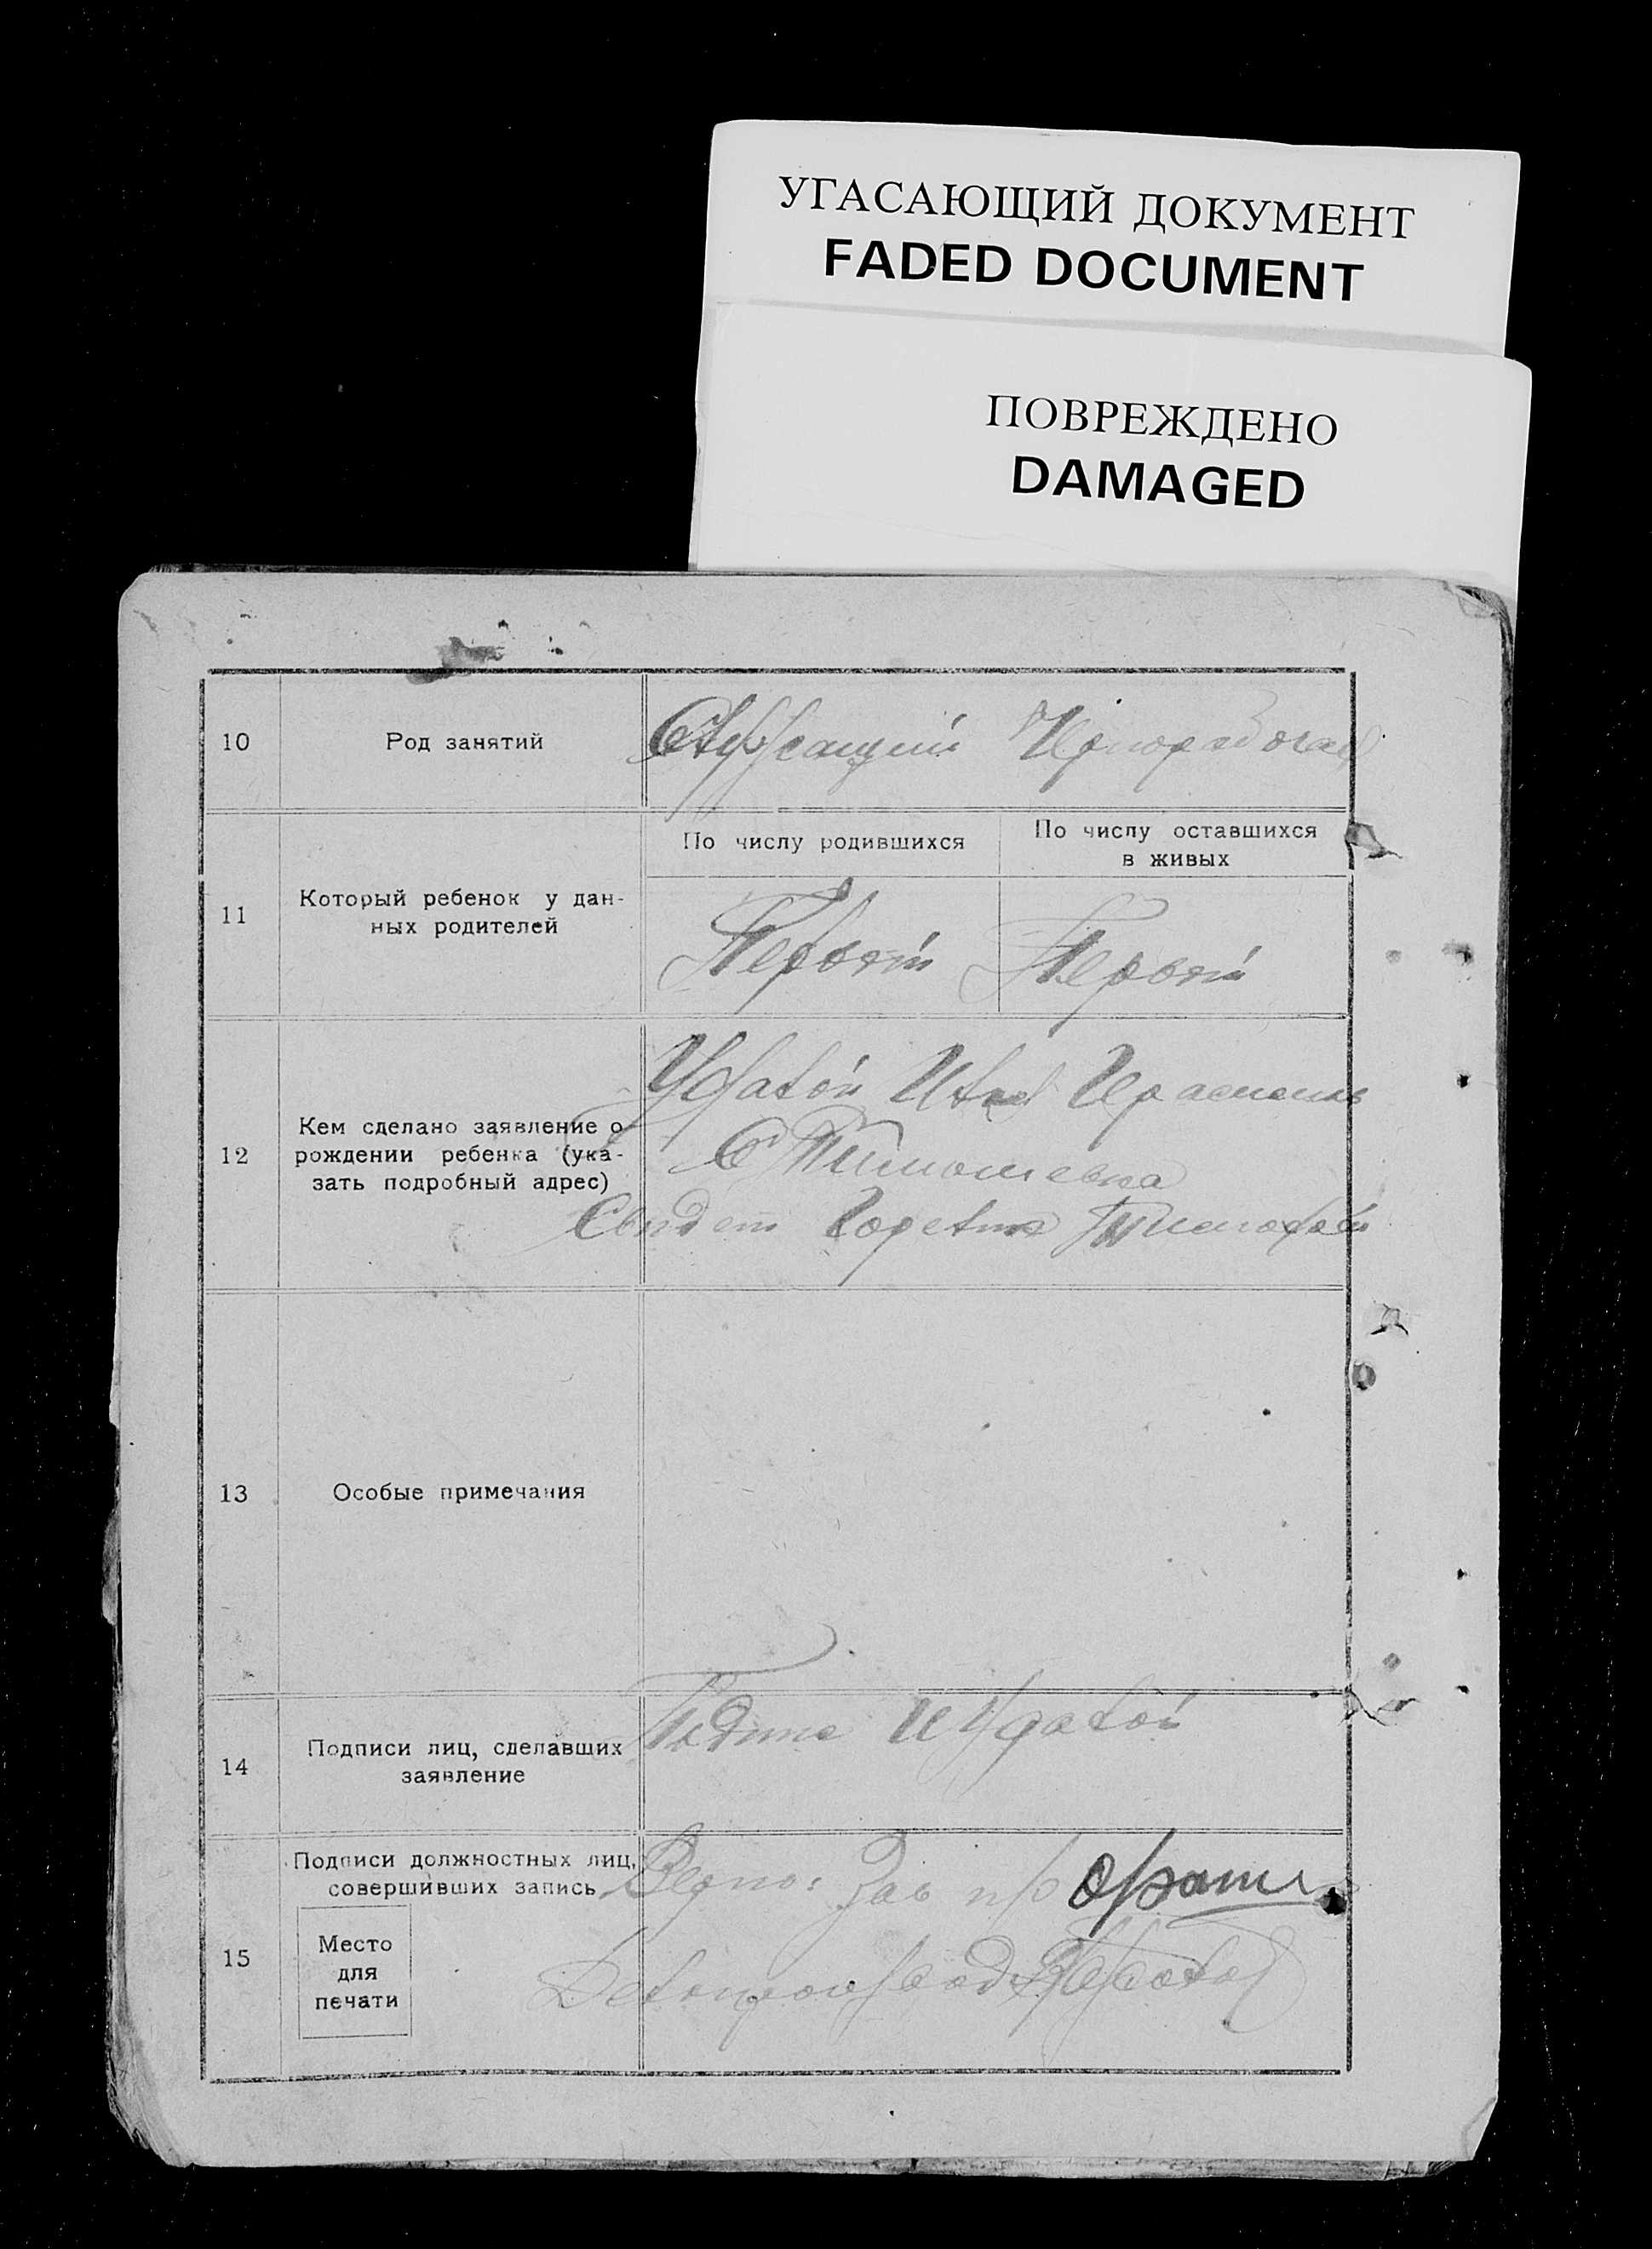 УГАСАЮЩИЙ ДОКУМЕНТ
FADED DOCUMENT
ПОВРЕЖДЕНО
DAMAGED
10
Род занятий
Служащий
11
Который ребенок у дан-
ных родителей
По числу родившихся
По числу оставшихся
в живых
Первый
Первый
12
Кем сделано заявление о
рождении ребенка (ука-
зать подробный адрес)
С Тимошевка
Тимофей
13
Особые примечания
14
Подписи лиц, сделавших
заявление
15
Подписи должностных лиц,
совершивших запись
Место
для
печати
Верно: Зав